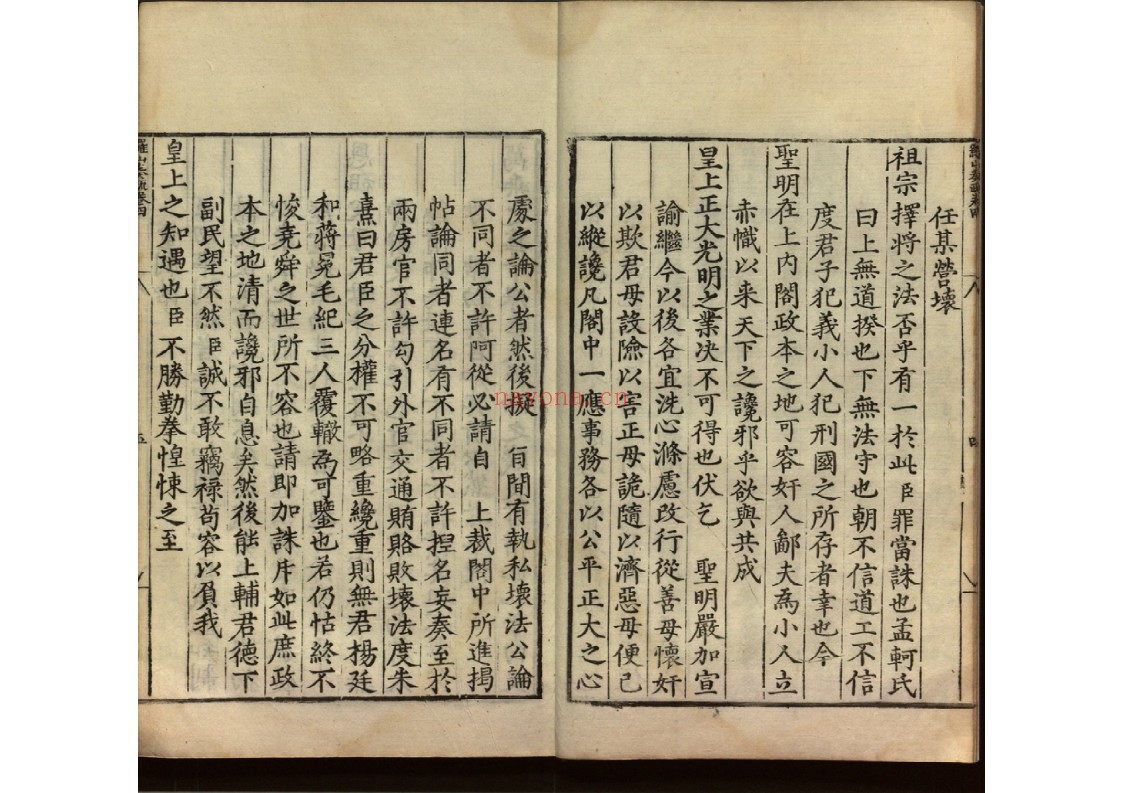 任某營壞
祖宗擇將之法否乎有一於此臣罪當誅也孟軻氏
曰上無道揆也下無法守也朝不信道工不信
度君子犯義小人犯刑國之所存者幸也今
聖明在上內閣政本之地可容奸人鄙夫為小人立
赤幟以来天下之讒邪乎欲與共成
皇上正大光明之業决不可得也伏乞 聖明嚴加宣
諭繼今以後各宜洗心滌慮改行從善毋懷奸
以欺君毋設險以害正毋詭隨以濟惡毋便己
以縱讒凡閣中一應事務各以公平正大之心
處之論公者然後擬 旨間有執私壞法公論
不同者不許阿從必請自 上裁閣中所進揭
帖論同者連名有不同者不許捏名妄奏至於
兩房官不許勾引外官交通賄賂敗壞法度朱
熹曰君臣之分權不可略重纔重則無君楊廷
和蔣冕毛紀三人覆轍為可鑒也若仍怙終不
悛堯舜之世所不容也請即加誅斥如此庶政
本之地清而讒邪自息矣然後能上輔君德下
副民望不然臣誠不敢竊禄苟容以負我
皇上之知遇也臣不勝勤拳惶悚之至
四
五
nayona.cn